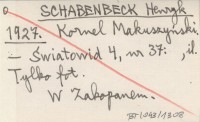 SCHABENBECK Henryk
1927. Kornel Makuszyński.
– Światowid 4, nr 37. , il.
Tylko fot.
W Zakopanem.